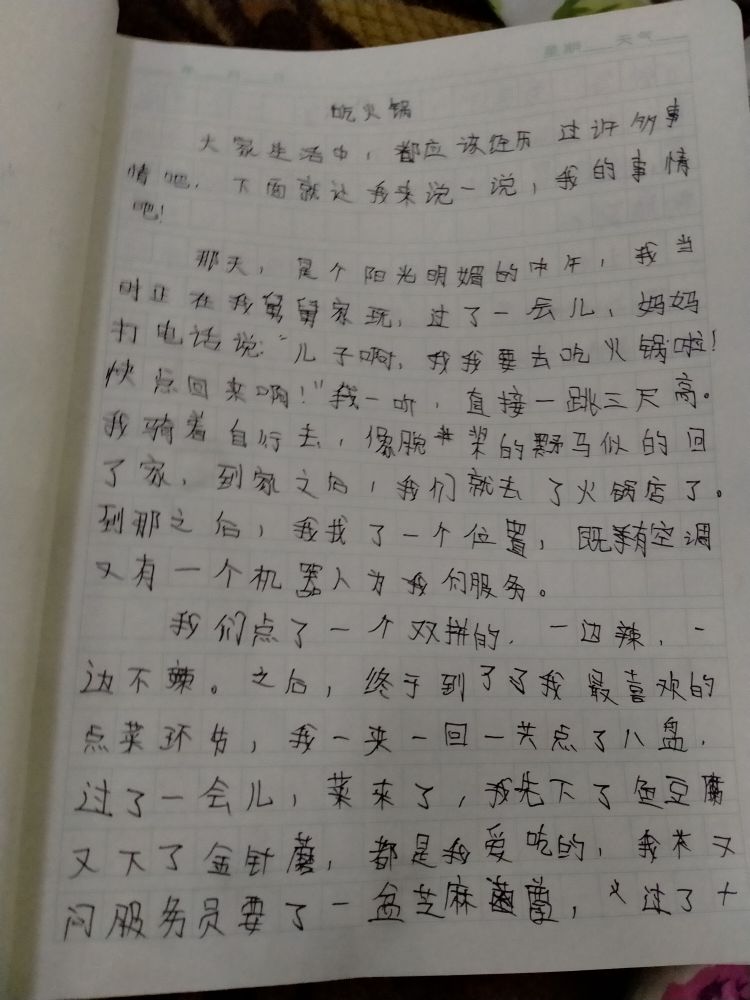 星期 天气
吃火锅
大家生活中，都应该经历过许多事
情吧，下面就让我来说一说，我的事情
吧！
那天，是个阳光明媚的中午，我当
时正在我舅舅家玩，过了一会儿，妈妈
打电话说："儿子啊，我我要去吃火锅啦！
快点回来啊！"我一听，直接一跳三尺高。
我骑着自行去，像脱 的野马似的回
了家，到家之后，我们就去了火锅店了。
到那之后，我找了一个位置，既有空调
又有一个机器人为我们服务。
我们点了一个双拼的，一边辣，一
边不辣。之后，终于到了了我最喜欢的
点菜环节，我一来一回一共点了八盘，
过了一会儿，菜来了，我先下了鱼豆腐
又下了金针蘑，都是我爱吃的，我 又
问服务员要了一盆芝麻 ，又过了十